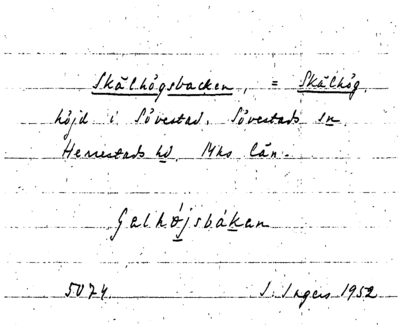 Skälhögsbacken, = Skälhög,
höjd i Sövestad, Sövestads sn
Herrestads hd. Mhs län.
Galhöjsbákan
5074. I. Ingers 1952